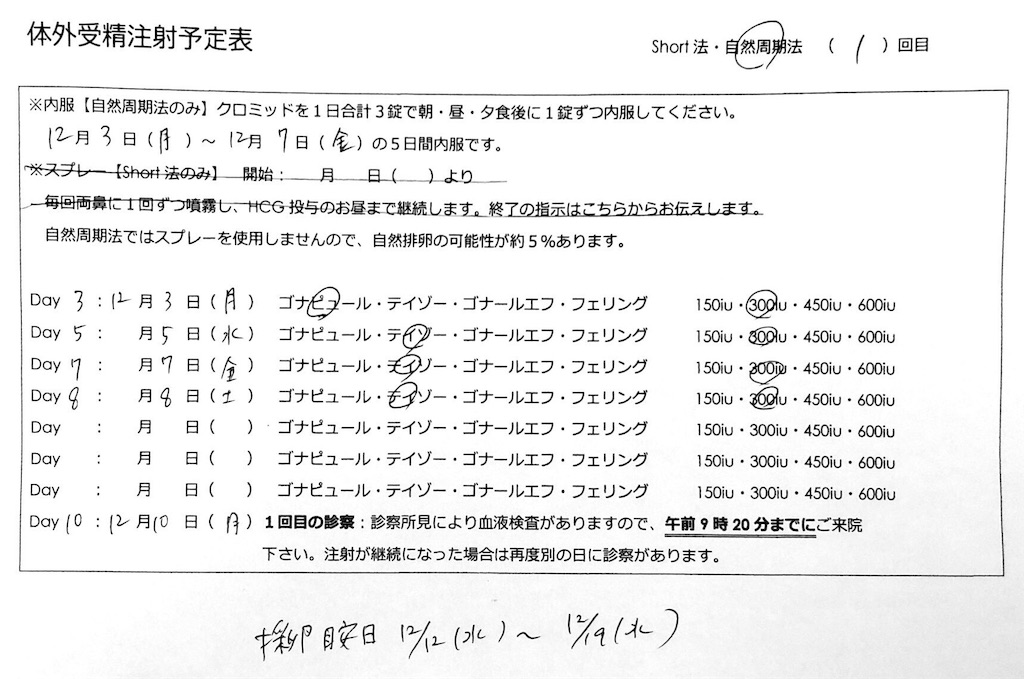 体外受精注射予定表
Short 法・自然周期法　（ 1 ）回目
※内服【自然周期法のみ】クロミッドを１日合計３錠で朝・昼・夕食後に１錠ずつ内服してください。
12月 3 日（月）～ 12月 7 日（金）の５日間内服です。
※スプレー【Short 法のみ】　開始：　　月　　日（　　）より
毎回両鼻に１回ずつ噴霧し、HCG 投与のお昼まで継続します。終了の指示はこちらからお伝えします。
自然周期法ではスプレーを使用しませんので、自然排卵の可能性が約５％あります。
Day 3 ：12 月 3 日（月）　ゴナピュール・テイゾー・ゴナールエフ・フェリング　150iu・300iu・450iu・600iu
Day 5 ：　月 5 日（水）　ゴナピュール・テイゾー・ゴナールエフ・フェリング　150iu・300iu・450iu・600iu
Day 7 ：　月 7 日（金）　ゴナピュール・テイゾー・ゴナールエフ・フェリング　150iu・300iu・450iu・600iu
Day 8 ：　月 8 日（土）　ゴナピュール・テイゾー・ゴナールエフ・フェリング　150iu・300iu・450iu・600iu
Day　：　月　日（　）　ゴナピュール・テイゾー・ゴナールエフ・フェリング　150iu・300iu・450iu・600iu
Day　：　月　日（　）　ゴナピュール・テイゾー・ゴナールエフ・フェリング　150iu・300iu・450iu・600iu
Day　：　月　日（　）　ゴナピュール・テイゾー・ゴナールエフ・フェリング　150iu・300iu・450iu・600iu
Day 10 ：12 月 10 日（月）１回目の診察：診察所見により血液検査がありますので、午前９時 20 分までにご来院
下さい。注射が継続になった場合は再度別の日に診察があります。
採卵目安日 12/12（水）～ 12/19（水）